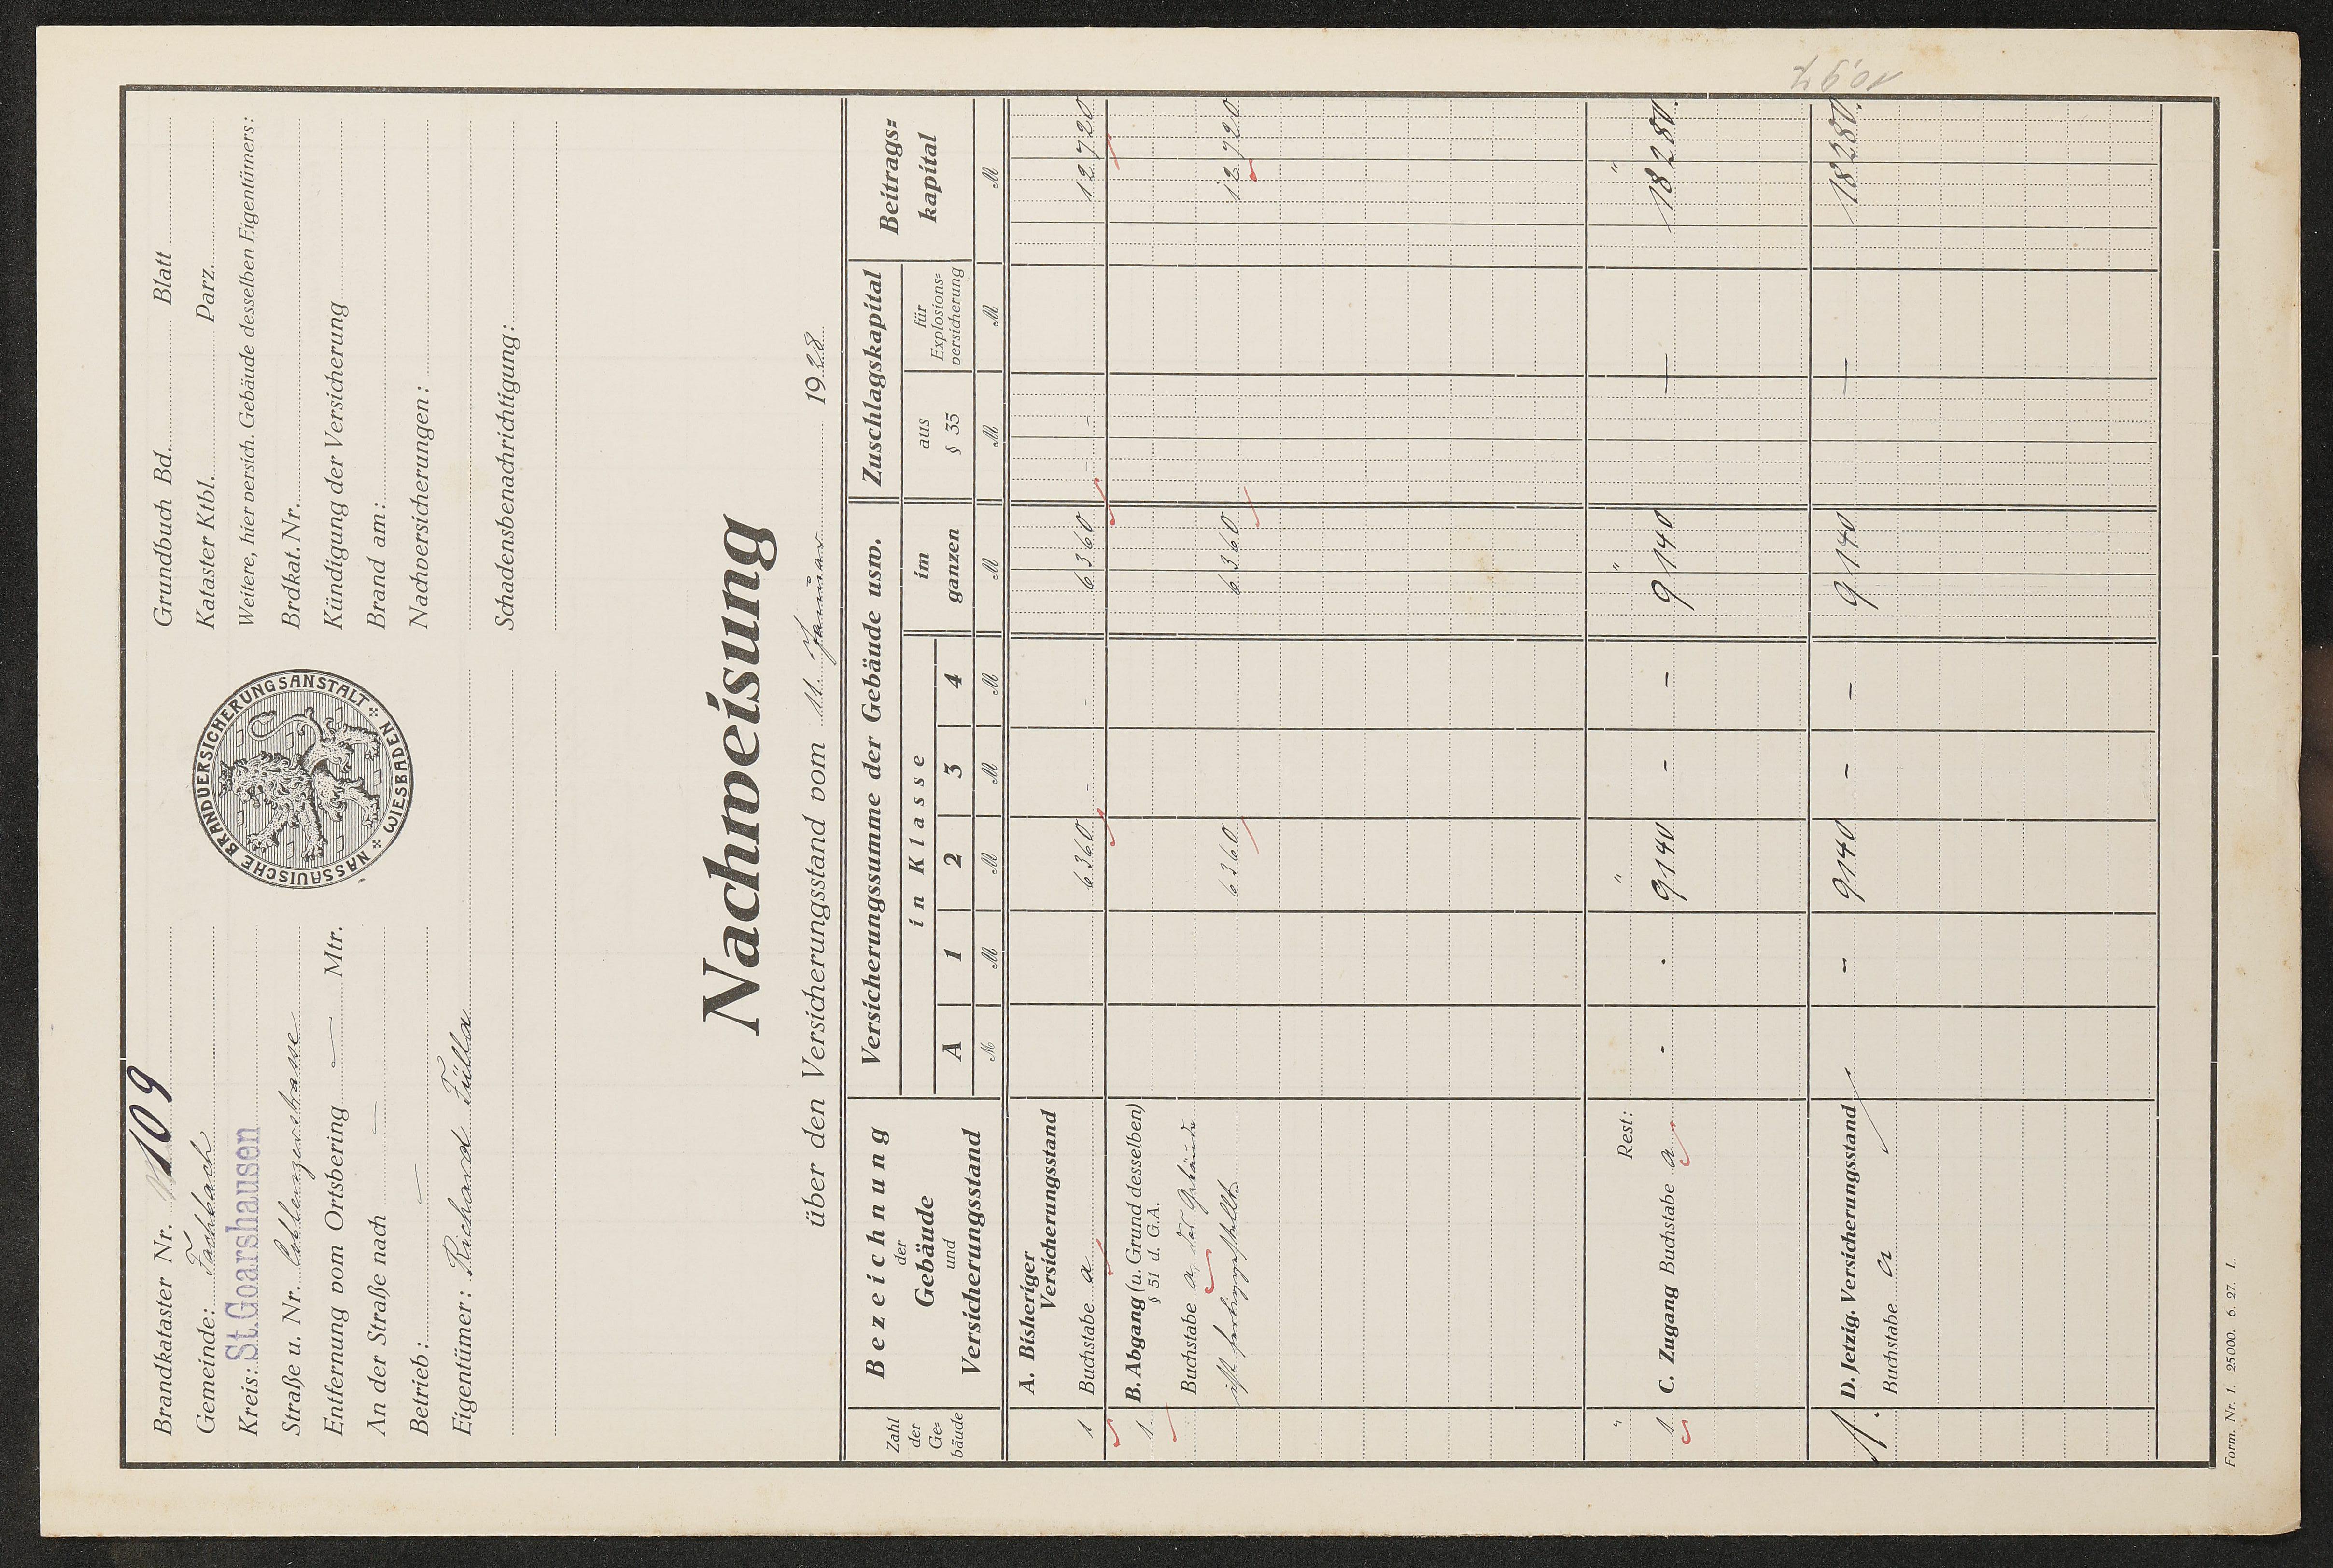 Brandkataster Nr. 109
Gemeinde: Fachbach
Kreis: St.Goarshausen
Straße u. Nr. Coblenzerstrasse
Entfernung vom Ortsbering — Mtr.
An der Straße nach —
Betrieb: —
Eigentümer: Richard Fülla
NASSAUISCHE BRANDVERSICHERUNGSANSTALT WIESBADEN
Grundbuch Bd. Blatt
Kataster Ktbl. Parz.
Weitere, hier versich. Gebäude desselben Eigentümers:
Brdkat. Nr.
Kündigung der Versicherung
Brand am:
Nachversicherungen:
Schadensbenachrichtigung:
Nachweisung
über den Versicherungsstand vom 11. Januar 1928
Zahl der Ge=bäude
Bezeichnung
der
Gebäude
und
Versicherungsstand
Versicherungssumme der Gebäude usw.
in Klasse
A 1 2 3 4
im ganzen
Zuschlagskapital
aus § 35
für Explosions=versicherung
Beitrags=kapital
M M M M M M M M M
A. Bisheriger
Versicherungsstand
1 Buchstabe a 6360 - - 6360 - - 12720
B. Abgang (u. Grund desselben)
§ 51 d. G.A.
1. Buchstabe a, das Gebäude
ist 6360 6360 12720
" Rest: " " "
1. C. Zugang Buchstabe a - . 9140 - - 9140 — 18280.
D. Jetzig. Versicherungsstand
1. Buchstabe a - 9140 - - 9140 — 18280.
Form. Nr. 1. 25000. 6. 27. I.